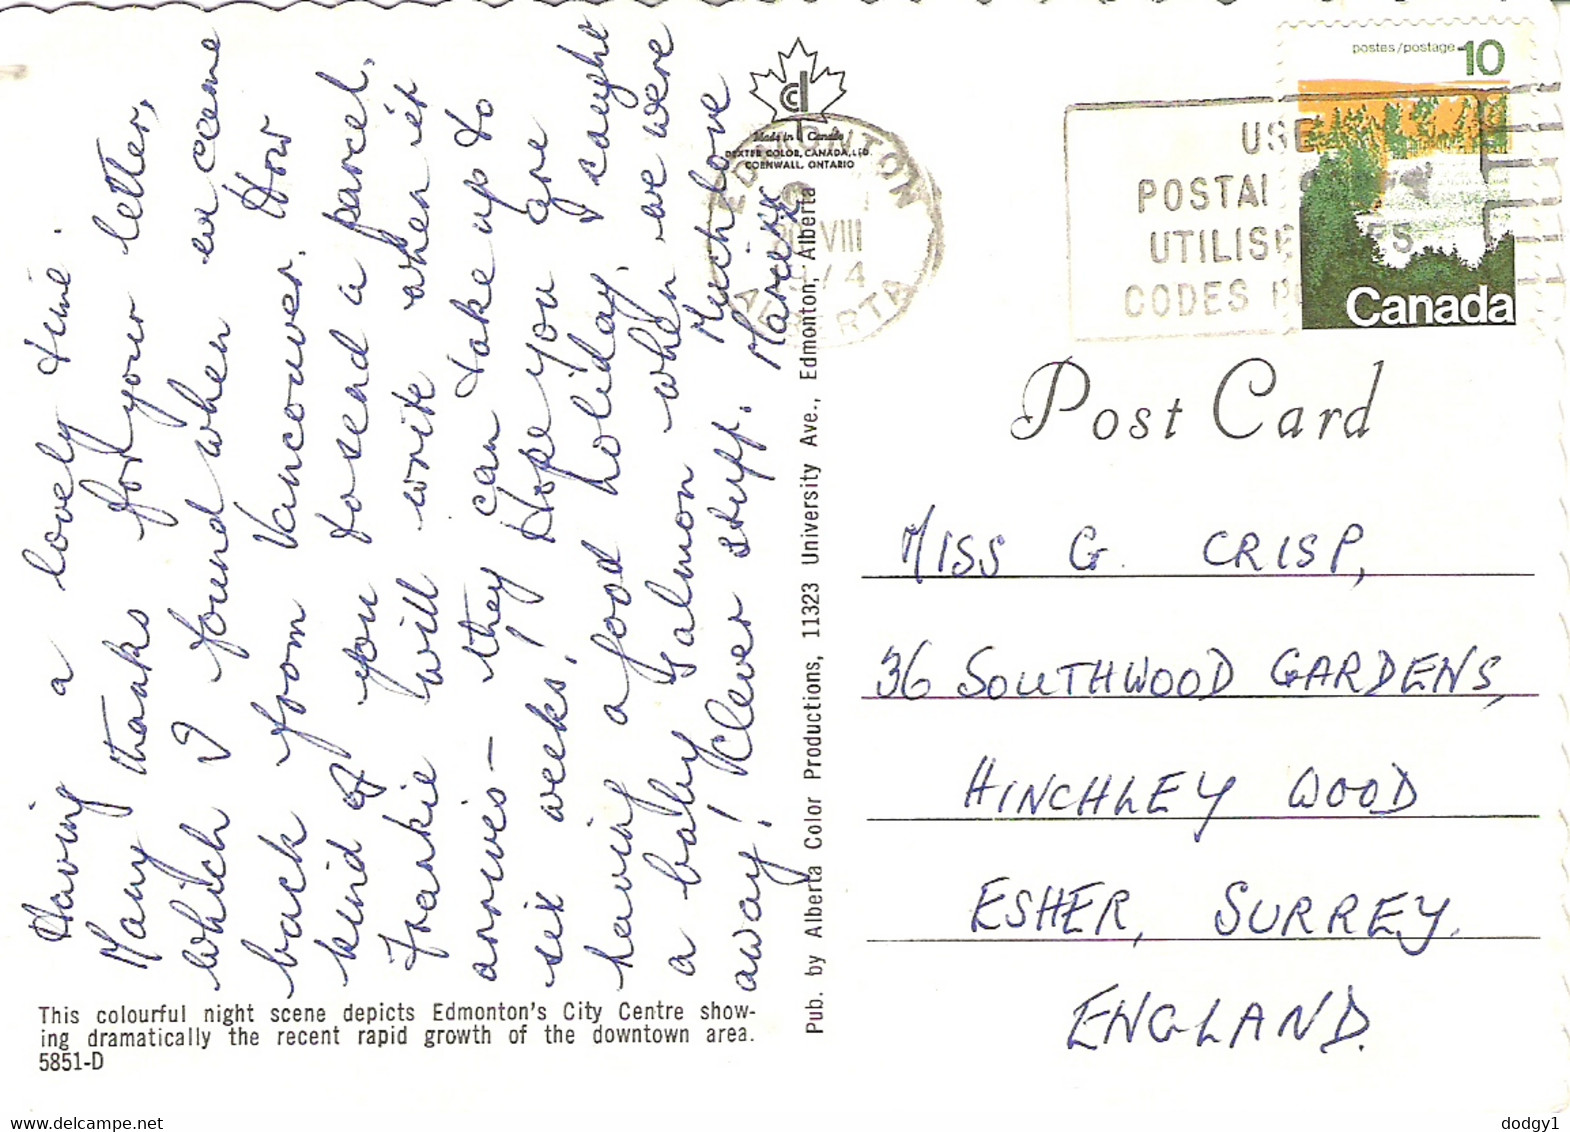 Having a lovely time.
Many thanks for your letter,
which I found when we came
back from Vancouver. How
kind of you to send a parcel.
Frankie will write when it
arrives - they can take up to
six weeks! Hope you are
having a good holiday. I caught
a baby salmon when we were
away! Clever stuff. Much love
This colourful night scene depicts Edmonton's City Centre show-
ing dramatically the recent rapid growth of the downtown area.
5851-D
Pub. by Alberta Color Productions, 11323 University Ave., Edmonton, Alberta
Made in Canada
DEXTER COLOR, CANADA, LTD.
CORNWALL, ONTARIO
EDMONTON
VIII
ALBERTA
USE
POSTAL
UTILISE
CODES
postes/postage 10
Canada
Post Card
MISS G. CRISP,
36 SOUTHWOOD GARDENS,
HINCHLEY WOOD
ESHER, SURREY.
ENGLAND.
dodgy1